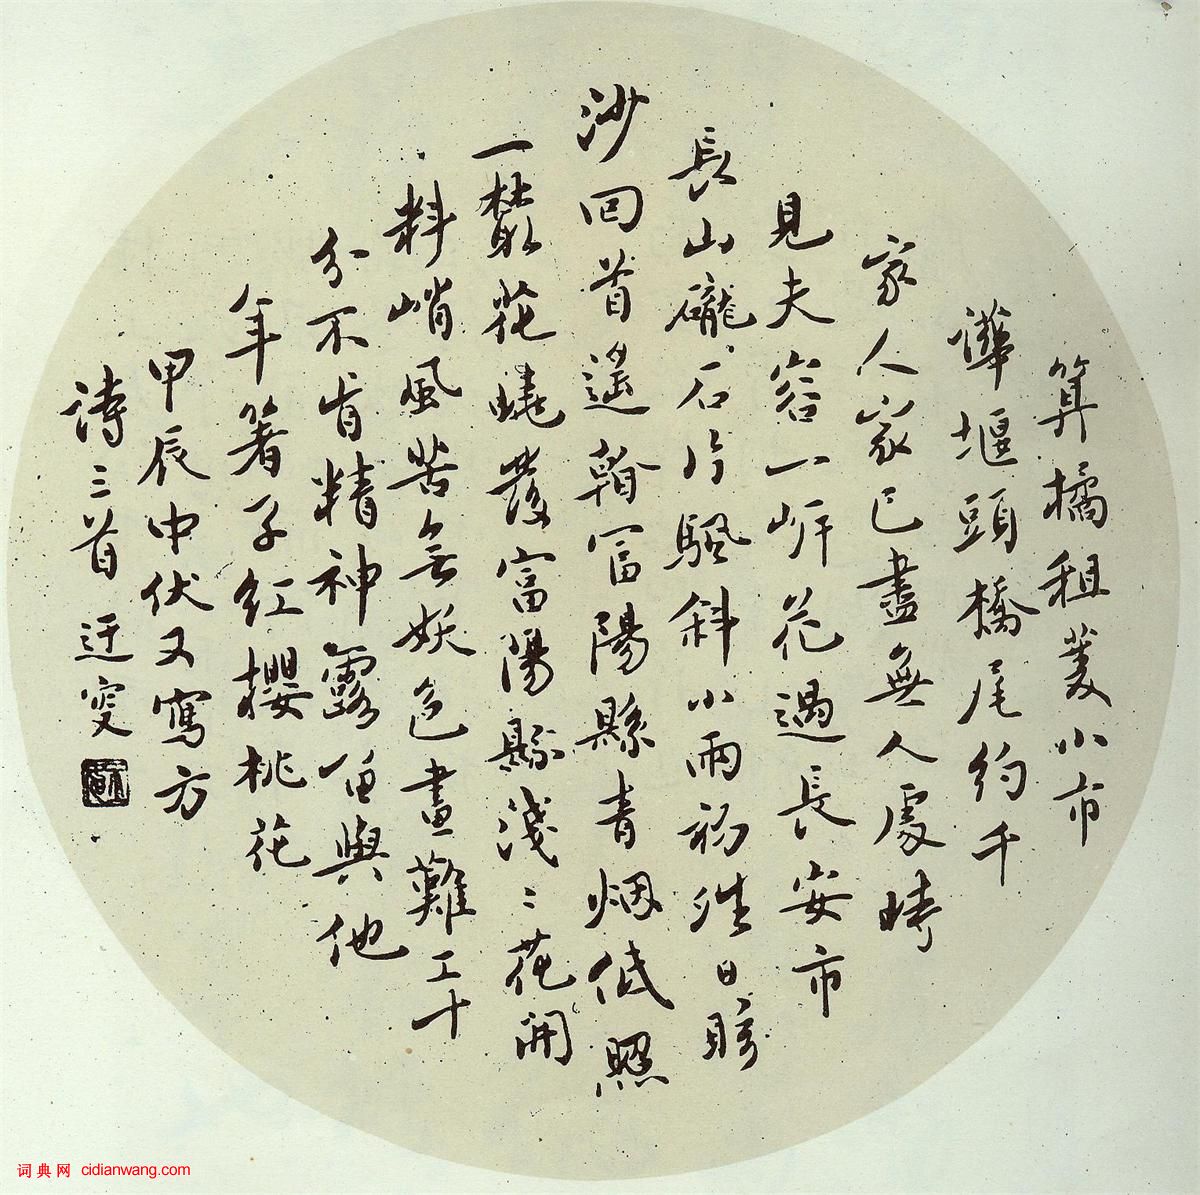 算橘租菱小市
嘩堰頭橋尾約千
家人家已盡無人處時
見夫容一㟁花過長安市
長山礲石片颿斜小雨初日脚
沙回首遥富陽縣青烟低照
一叢花曉發富陽縣淺〻花開
料峭風苦無妖色畫難工十
分不肯精神露留與他
年著子紅櫻桃花
甲辰中伏又寫方
詩三首迂叟
词典网 cidianwang.com